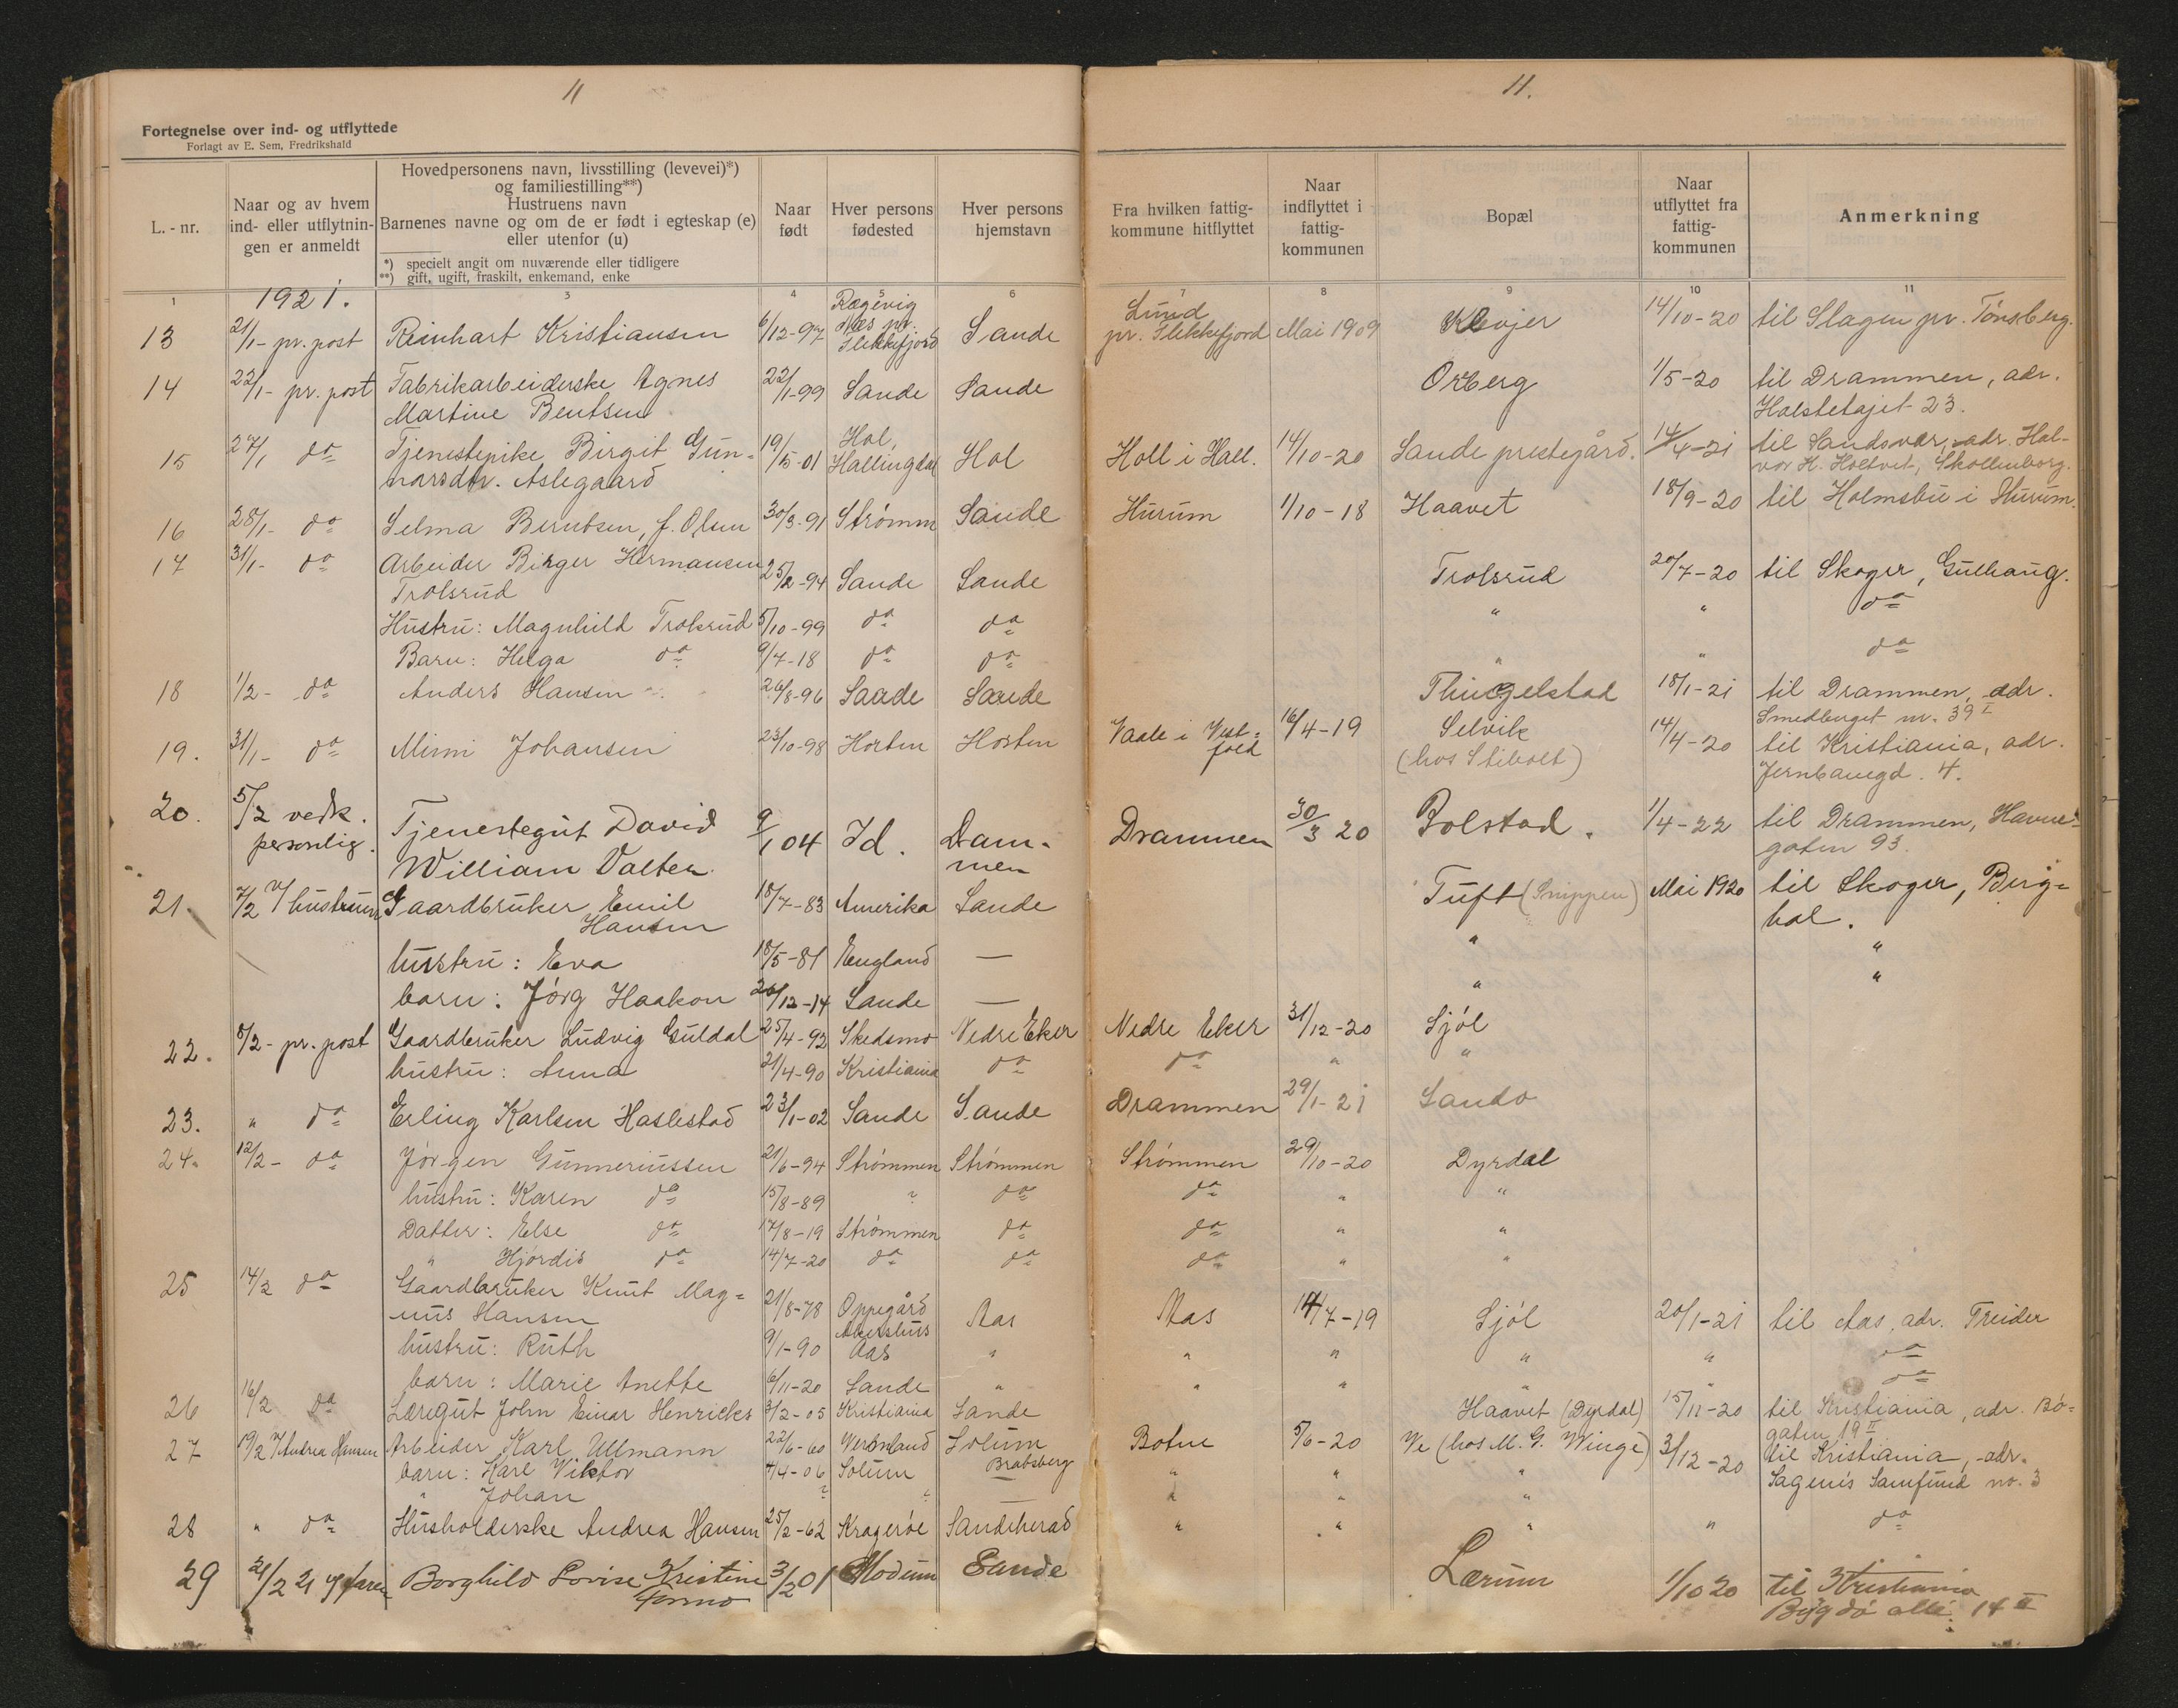 11
11.
Fortegnelse over ind- og utflyttede
Forlagt av E. Sem, Fredrikshald
L. - nr.
Naar og av hvem ind- eller utflytnin- gen er anmeldt
Hovedpersonens navn, livsstilling (levevei)*)
og familiestilling**)
Hustruens navn
Barnenes navne og om de er født i egteskap (e)
eller utenfor (u)
*) specielt angit om nuværende eller tidligere
**) gift, ugift, fraskilt, enkemand, enke
Naar født
Hver persons fødested
Hver persons hjemstavn
Fra hvilken fattig- kommune hitflyttet
Naar indflyttet i fattig- kommunen
Bopæl
Naar utflyttet fra fattig- kommunen
Anmerkning
1 3 4 5 6 7 8 9 10 11
1921.
13 21/1- pr. post Reinhart Kristiansen 6/12-97 Rægevig Næs pr. Flekkefjord Sande Lund pr. Flekkefjord Mai 1909 Klevjer 14/10-20 til Slagen pr. Tønsberg.
14 22/1- pr. post Fabrikarbeiderske Agnes 22/1-99 Sande Sande Orberg 1/5-20 til Drammen, adr.
Martine Bentsen Halstetajet 23.
15 27/1 do Tjenestepike Birgit Gun- 19/15-01 Hol, Hallingdal Hol Holl i Hall. 14/10-20 Sande prestegård. 14/4-21 til Sandsvær, adr. Hal-
narsdtr. Aslegaard vor H. Holtvet, Skollenborg.
16 28/1- do Selma Berntsen, f. Olsen 30/3-91 Strømm Sande Hurum 1/10-18 Haavet 18/9-20 til Holmsbu i Hurum.
17 31/1- do Arbeider Birger Hermansen 25/2-94 Sande Sande Trolsrud 20/7-20 til Skoger, Gulhaug.
Trolsrud
Hustru: Magnhild Trolsrud 5/10-99 do do " " do
Barn: Helga do 9/7-18 do do " " do
18 1/2- do Anders Hansen 26/8-96 Sande Sande Thingelstad 18/1-21 til Drammen, adr.
Smedberget nr. 39 I
19. 31/1- do Mimi Johansen 23/10-98 Horten Horten Vaale i Vest- fold 16/4-19 Selvik 14/4-20 til Kristiania, adr.
(hos Stibolt) Jernbanegd. 4.
20. 5/2 vedk. personlig. Tjenestegut David 9/1 04 Id. Dram- men Drammen 30/3 20 Bolstad. 1/4-22 til Drammen, Havne-
William Valter gaten 93.
21. 7/2 v/ hustruen Gaardbruker Emil 18/7-83 Amerika Sande Tuft (Snippen) Mai 1920 til Skoger, Berg-
Hansen hal.
hustru: Eva 18/5-81 England — " "
barn: Jørg Haakon 26/12-14 Sande — " "
22. 8/2- pr. post Gaardbruker Ludvig Guldal 25/4-92 Skedsmo Nedre Eker Nedre Eker 31/12-20 Sjøl
hustru: Anna 21/4-90 Kristiania do do " "
23. " do Erling Karlsen Haslestad 23/1-02 Sande Sande Drammen 29/1-21 Sando
24. 12/2- do Jørgen Gunneriussen 21/6-94 Strømmen Strømmen Strømmen 29/10-20 Dyrdal
hustru: Karen do 15/8-89 ? do do " "
Datter: Else do 17/8-19 Strømmen do do " "
" Hjørdis do 14/7-20 do do do " "
25 14/2 do Gaardbruker Knut Mag-
nus Hansen 21/8-78 Oppegård Akershus Aas Aas 14/7-19 Sjøl 20/1-21 til Aas, adr. Treider
hustru: Ruth 9/1-90 Aas " " " " " do
barn: Marie Anette 6/11-20 Sande " " " " " do
26 16/2 do Læregut John Einar Henricks 3/2-05 Kristiania Sande Haavet (Dyrdal) 15/11-20 til Kristiania, adr. Bø-
gaten 19 II
27 19/2 v/ Andrea Hansen Arbeider Karl Ullmann 22/6-60 Wermland Solum Bratsberg Botne 5/6-20 Ve (hos M. G. Winge) 31/12-20 til Kristiania, adr.
barn: Karl Viktor 4/4-06 Solum — " " " Sagenes Samfund no. 3
" Johan ? ? — " " "
28 " do Husholderske Andrea Hansen 25/2-62 Kragerøe Sandeherad " " " " do
29 21/2 21 v/ faren Borghild Lovise Kristine 3/2 01 Modum Sande Lærum 1/10 20 til Kristiania
Bygdø allé 14 II